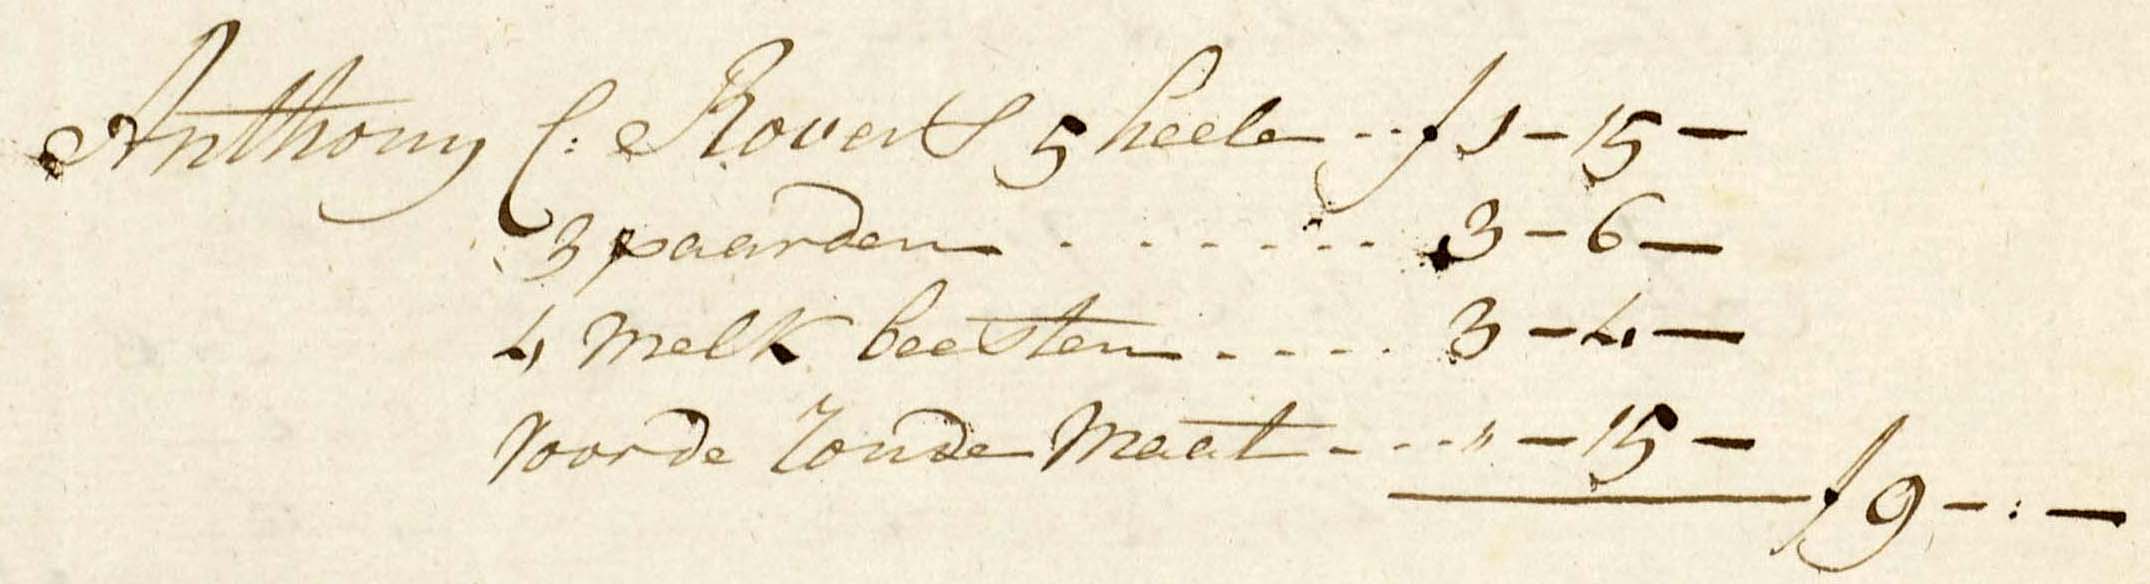 Anthony C: Rovers 5 heele -- f 1 - 15 -
3 paarden . . - - - - - 3 - 6 -
4 Melk beesten - - - - 3 - 4 -
voorde ronde Maat - - - - " - 15 -
f 9 - : -